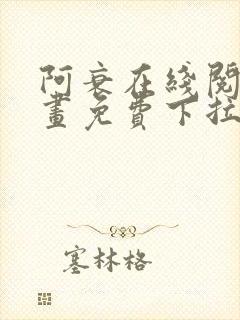 阿衰在线阅
画免费下拉
塞林格